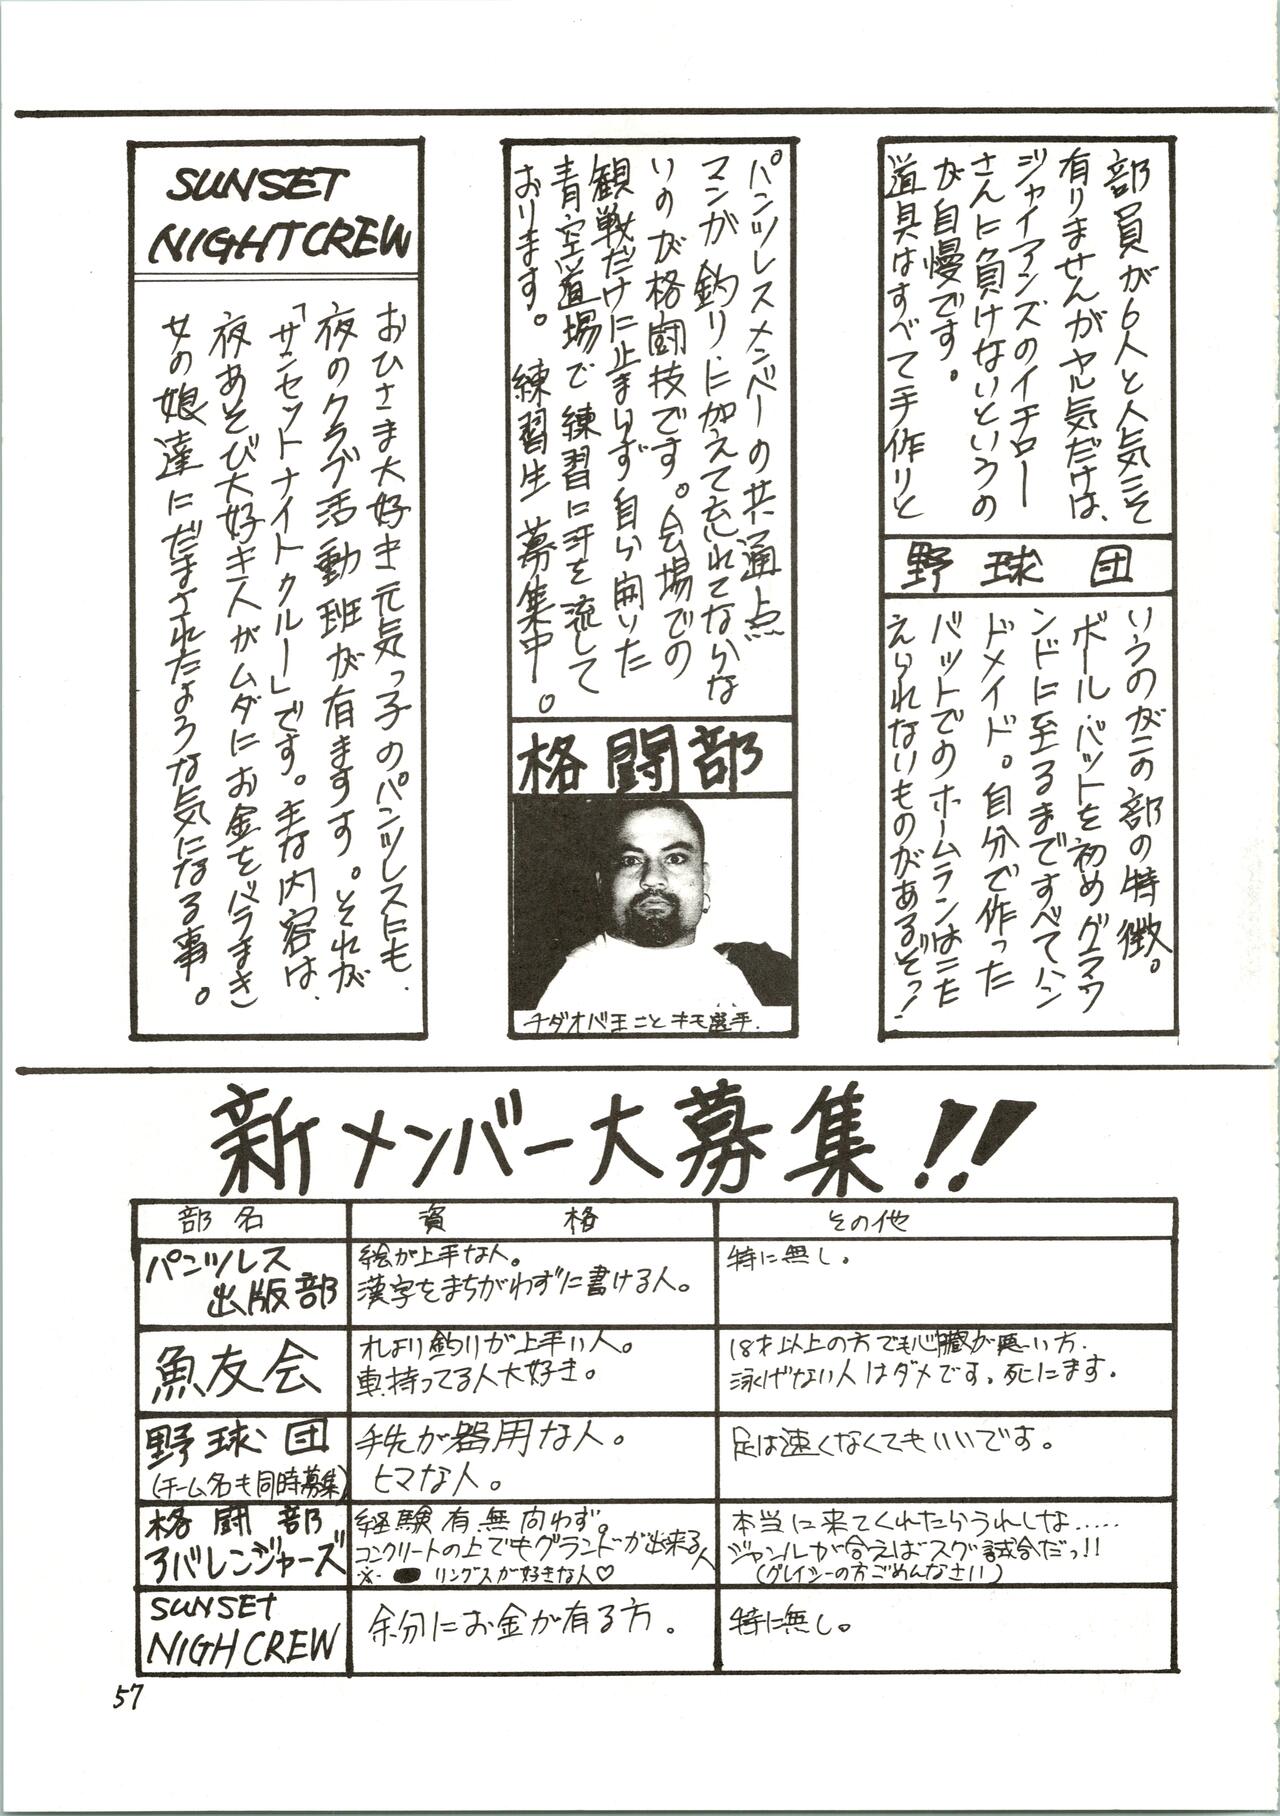 部員が6人と人気こそ
有りませんがヤル気だけは、
ジャイアンズのイチロー
さんに負けないというの
が自慢です。
道具はすべて手作りと
野球団
いうのがこの部の特徴。
ボール、バットを初めグラウ
ンドに至るまですべてハン
ドメイド。自分で作った
バットでのホームランはこた
えられないものがあるぞっ!
パンツレスメンバーの共通点
マンガ、釣りに加えて忘れてならな
いのが格闘技です。会場での
観戦だけに止まらず自ら開いた
青空道場で練習に汗を流して
おります。練習生募集中。
格闘部
チダオバ王ことキモ選手.
SUNSET
NIGHTCREW
おひさま大好き元気っ子のパンツレスにも、
夜のクラブ活動班が有ますす。それが
「サンセットナイトクルー」です。主な内容は、
夜あそび大好キ人がムダにお金をバラまき
女の娘達にだまされたような気になる事。
新メンバー大募集!!
部名 資格 その他
パンツレス
出版部
絵が上手な人。
漢字をまちがわずに書ける人。
特に無し。
魚友会
れより釣りが上手い人。
車持ってる人大好き。
18才以上の方でも心臓が悪い方.
泳げない人はダメです。死にます。
野球団
(チーム名も同時募集)
手先が器用な人。
ヒマな人。
足は速くなくてもいいです。
格闘部
アバレンジャーズ
経験有無問わず。
コンクリートの上でもグランドが出来る人
※ リングスが好きな人♡
本当に来てくれたらうれしな.....
ジャンルが合えばスグ試合だっ!!
(グレイシーの方ごめんなさい)
SUNSET
NIGHCREW
余分にお金が有る方。
特に無し。
57